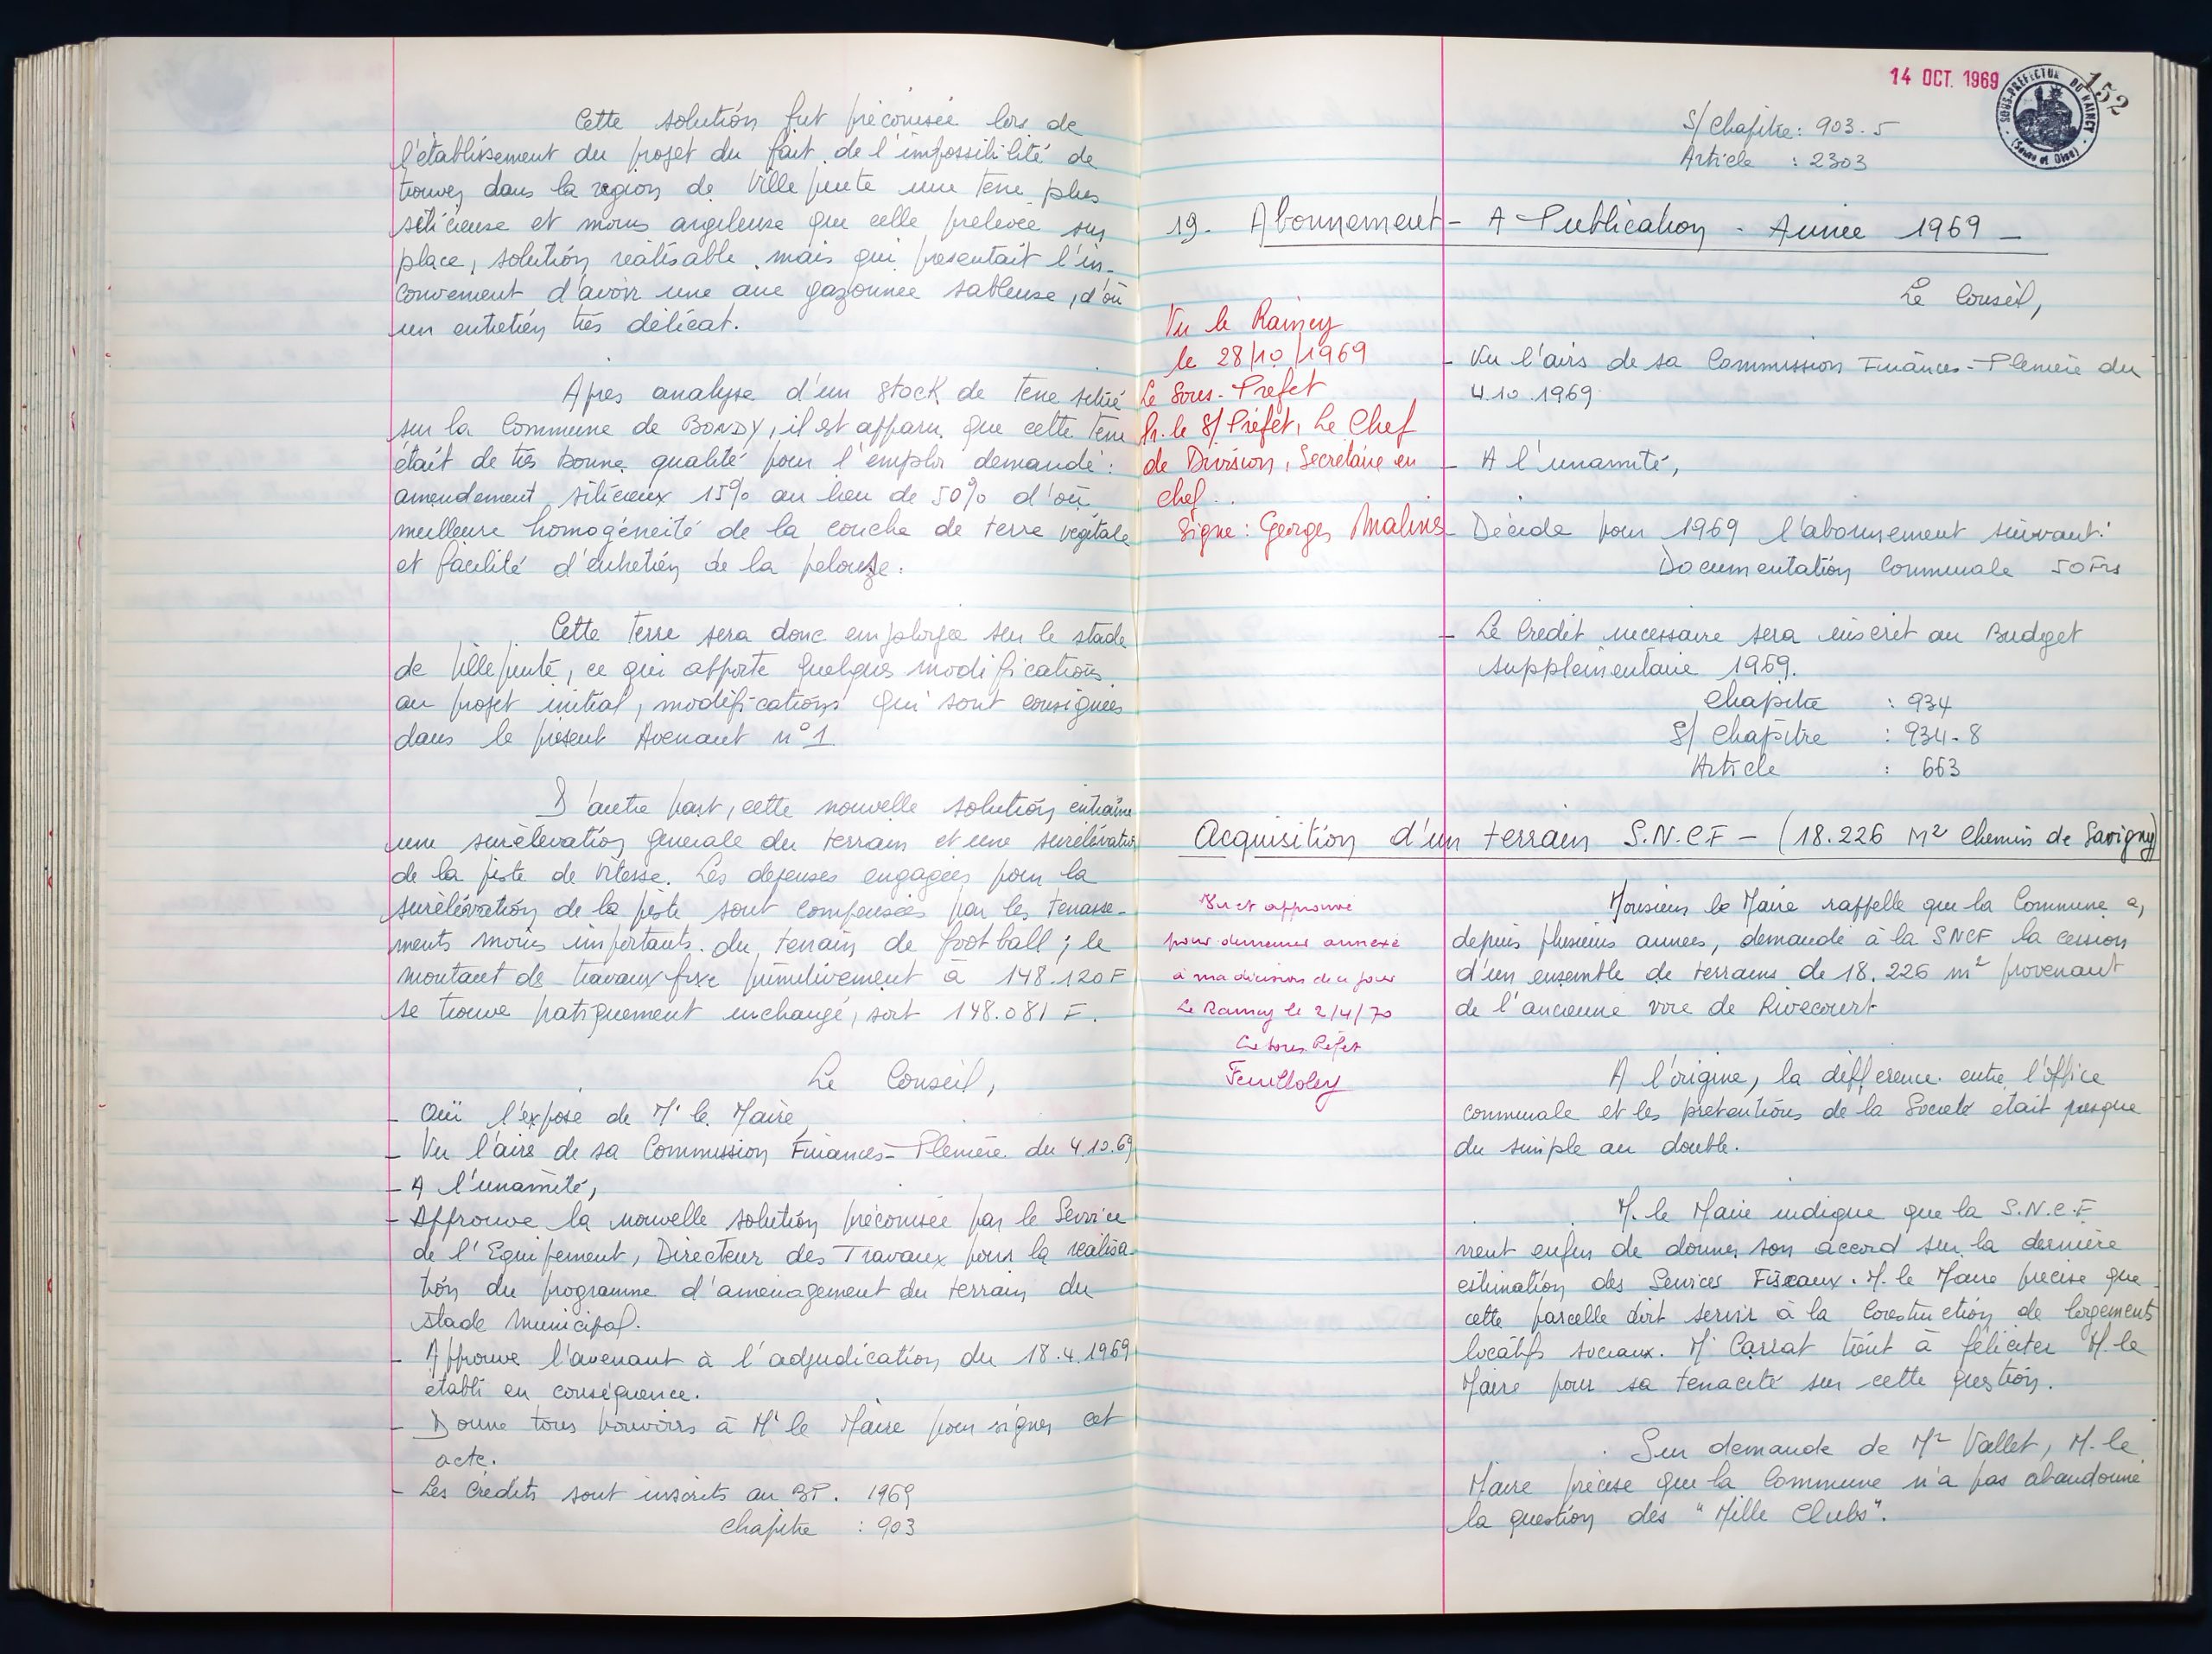 Cette solution fut préconisée lors de
l'établissement du projet du fait de l'impossibilité de
trouver dans la region de Villepinte une terre plus
siliceuse et moins argileuse que celle prelevée sur
place, solution réalisable, mais qui presentait l'in-
convenient d'avoir une aire gazonnée sableuse, d'où
un entretien très délicat.
Apres analyse d'un stock de terre situé
sur la Commune de BONDY, il est apparu que cette terre
était de très bonne qualité pour l'emploi demandé :
amendement siliceux 15% au lieu de 50% d'où
meilleure homogénéité de la couche de terre végétale
et facilité d'entretien de la pelouse.
Cette terre sera donc employée sur le stade
de Villepinte, ce qui apporte quelques modifications
au projet initial, modifications qui sont consignées
dans le présent Avenant n°1
D'autre part, cette nouvelle solution entraîne
une surélevation generale du terrain et une surélévation
de la piste de vitesse. Les depenses engagées pour la
surélévation de la piste sont compensées par les terrasse-
ments moins importants du terrain de foot ball ; le
montant de travaux fixe primitivement à 148.120 F
se trouve pratiquement inchangé, soit 148.081 F.
Le Conseil,
- Ouï l'exposé de Mr le Maire
- Vu l'avis de sa Commission Finances-Plenière du 4.10.69
- A l'unamité,
- Approuve la nouvelle solution préconisée par le Service
de l'Equipement, Directeur des Travaux pour la réalisa-
tion du programme d'aménagement du terrain du
stade Municipal.
- Approuve l'avenant à l'adjudication du 18.4.1969
établi en conséquence.
- Donne tous pouvoirs à Mr le Maire pour signer cet
acte.
- Les Crédits sont inscrits au BP. 1969
Chapitre : 903
14 OCT. 1969
SOUS-PREFECTURE DU RAINCY
(Seine et Oise)
152
S/Chapitre : 903.5
Article : 2303
19- Abonnement - A Publication - Année 1969 -
Le Conseil,
- Vu l'avis de sa Commission Finances-Plenière du
4.10.1969
- A l'unamité,
- Décide pour 1969 l'abonnement suivant :
Documentation Communale 50 Frs
- Le Crédit necessaire sera inscrit au Budget
supplémentaire 1969.
Chapitre : 934
S/ Chapitre : 934-8
Article : 663
Vu le Raincy
le 28/10/1969
Le Sous-Prefet
Pr. le S/Préfet, Le Chef
de Division, Secrétaire en
chef.
Signe : Georges Malines
Acquisition d'un terrain S.N.C.F - (18.226 M2 Chemin de Savigny)
Monsieur le Maire rappelle que la Commune a,
depuis plusieurs années, demandé à la SNCF la cession
d'un ensemble de terrains de 18.226 m2 provenant
de l'ancienne voie de Rivecourt
A l'origine, la différence entre l'office
communale et les pretentions de la Societé était presque
du simple au double.
M. le Maire indique que la S.N.C.F
vient enfin de donner son accord sur la dernière
estimation des Services Fiscaux. M. le Maire précise que
cette parcelle doit servir à la Construction de logements
locatifs sociaux. Mr Carrat tient à féliciter M. le
Maire pour sa tenacité sur cette question.
Sur demande de Mr Vallet, M. le
Maire précise que la Commune n'a pas abandonné
la question des "Mille Clubs".
Vu et approuvé
pour demeurer annexé
à ma décision de ce jour
Le Raincy le 2/4/70
Le Sous Préfet